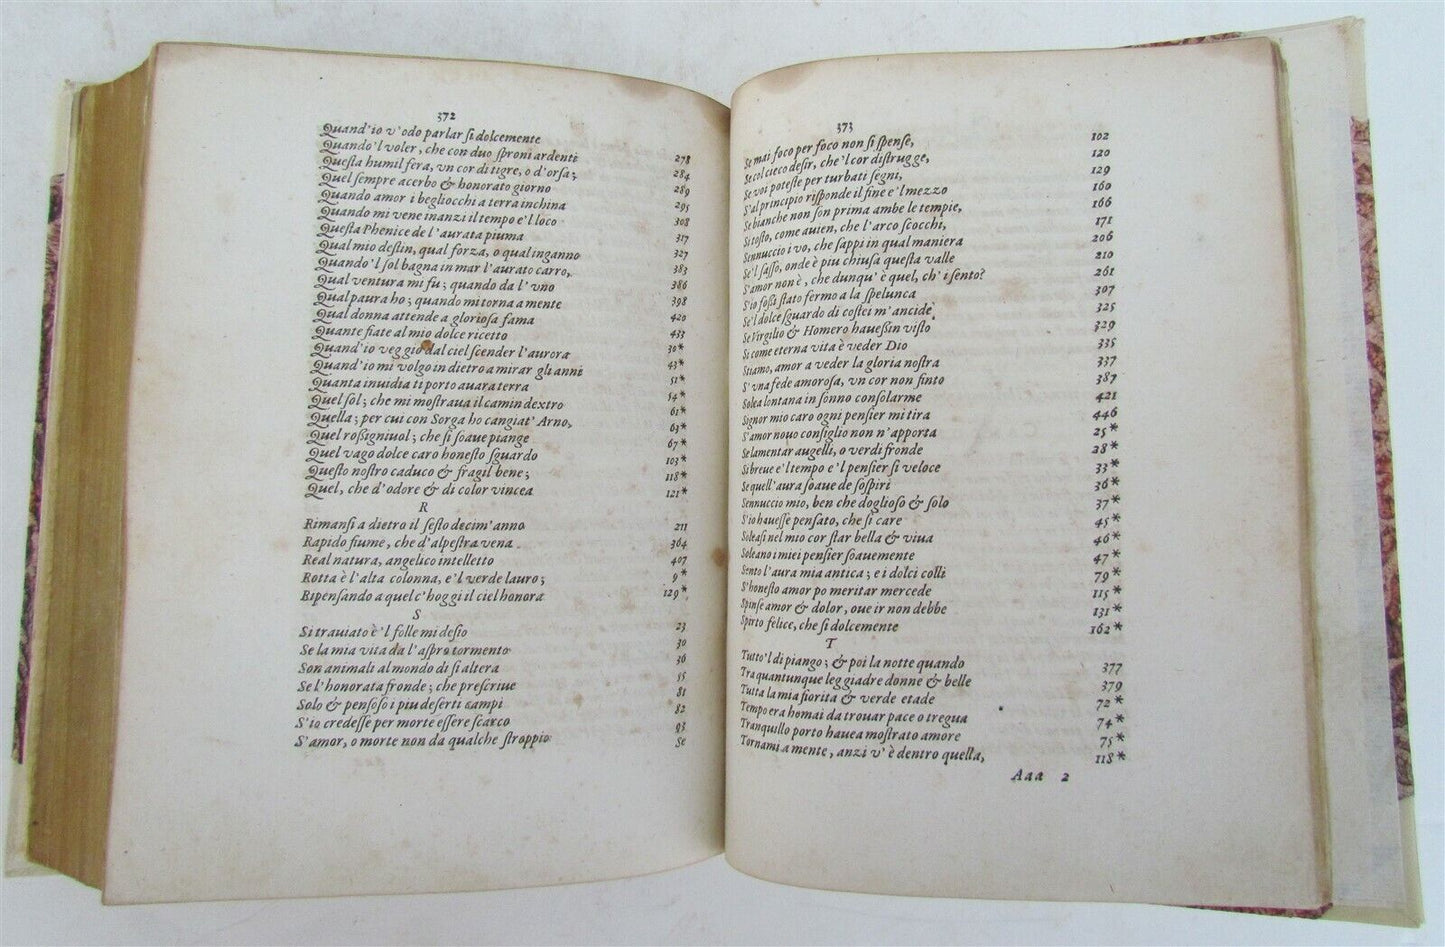 372
Quand'io v'odo parlar ſi dolcemente 278
Quando'l voler, che con duo ſproni ardenti 284
Queſta humil fera, vn cor di tigre, o d'orſa; 289
Quel ſempre acerbo & honorato giorno 295
Quando amor i begliocchi a terra inchina 308
Quando mi vene inanzi il tempo e'l loco 317
Queſta Phenice de l'aurata piuma 327
Qual mio deſtin, qual forza, o qual inganno 383
Quando'l ſol bagna in mar l'aurato carro, 386
Qual ventura mi fu; quando da l'vno 398
Qual paura ho; quando mi torna a mente 420
Qual donna attende a glorioſa fama 433
Quante fiate al mio dolce ricetto 30*
Quand'io veggio dal ciel ſcender l'aurora 43*
Quand'io mi volgo in dietro a mirar gli anni 51*
Quanta inuidia ti porto auara terra 54*
Quel ſol; che mi moſtraua il camin dextro 61*
Quella; per cui con Sorga ho cangiat' Arno, 63*
Quel roßigniuol; che ſi ſoaue piange 67*
Quel vago dolce caro honeſto ſguardo 103*
Queſto noſtro caduco & fragil bene; 118*
Quel, che d'odore & di color vincea 121*
R
Rimanſi a dietro il ſeſto decim'anno 211
Rapido fiume, che d'alpeſtra vena 364
Real natura, angelico intelletto 407
Rotta è l'alta colonna, e'l verde lauro; 9*
Ripenſando a quel c'hoggi il ciel honora 129*
S
Si trauiato è'l folle mi deſio 23
Se la mia vita da l'aſpro tormento 30
Son animali al mondo di ſi altera 36
Se l'honorata fronde; che preſcriue 55
Solo & penſoſo i piu deſerti campi 81
S'io credeſſe per morte eſſere ſcarco 82
S'amor, o morte non da qualche ſtroppio 93
Se
373
Se mai foco per foco non ſi ſpenſe, 102
Se col cieco deſir, che'l cor diſtrugge, 120
Se voi poteſte per turbati ſegni, 129
S'al principio riſponde il fine e'l mezzo 160
Se bianche non ſon prima ambe le tempie, 166
Si toſto, come auien, che l'arco ſcocchi, 171
Sennuccio i vo, che ſappi in qual maniera 206
Se'l ſaſſo, onde è piu chiuſa queſta valle 210
S'amor non è, che dunqu' è quel, ch' i ſento? 261
S'io foßi ſtato fermo a la ſpelunca 307
Se'l dolce ſguardo di coſtei m'ancide 325
Se Virgilio & Homero haueßin viſto 329
Si come eterna vita è veder Dio 335
Stiamo, amor a veder la gloria noſtra 337
S'vna fede amoroſa, vn cor non finto 387
Solea lontana in ſonno conſolarme 421
Signor mio caro ogni penſier mi tira 446
S'amor nouo conſiglio non n'apporta 25*
Se lamentar augelli, o verdi fronde 28*
Si breue e'l tempo e'l penſier ſi veloce 33*
Se quell'aura ſoaue de ſoſpiri 36*
Sennuccio mio, ben che doglioſo & ſolo 37*
S'io haueſſe penſato, che ſi care 45*
Soleaſi nel mio cor ſtar bella & viua 46*
Soleano i miei penſier ſoauemente 47*
Sento l'aura mia antica; e i dolci colli 79*
S'honeſto amor po meritar mercede 115*
Spinſe amor & dolor, oue ir non debbe 131*
Spirto felice, che ſi dolcemente 162*
T
Tutto'l di piango; & poi la notte quando 377
Tra quantunque leggiadre donne & belle 379
Tutta la mia fiorita & verde etade 72*
Tempo era homai da trouar pace o tregua 74*
Tranquillo porto hauea moſtrato amore 75*
Tornami a mente, anzi v' è dentro quella, 118*
Aaa 2